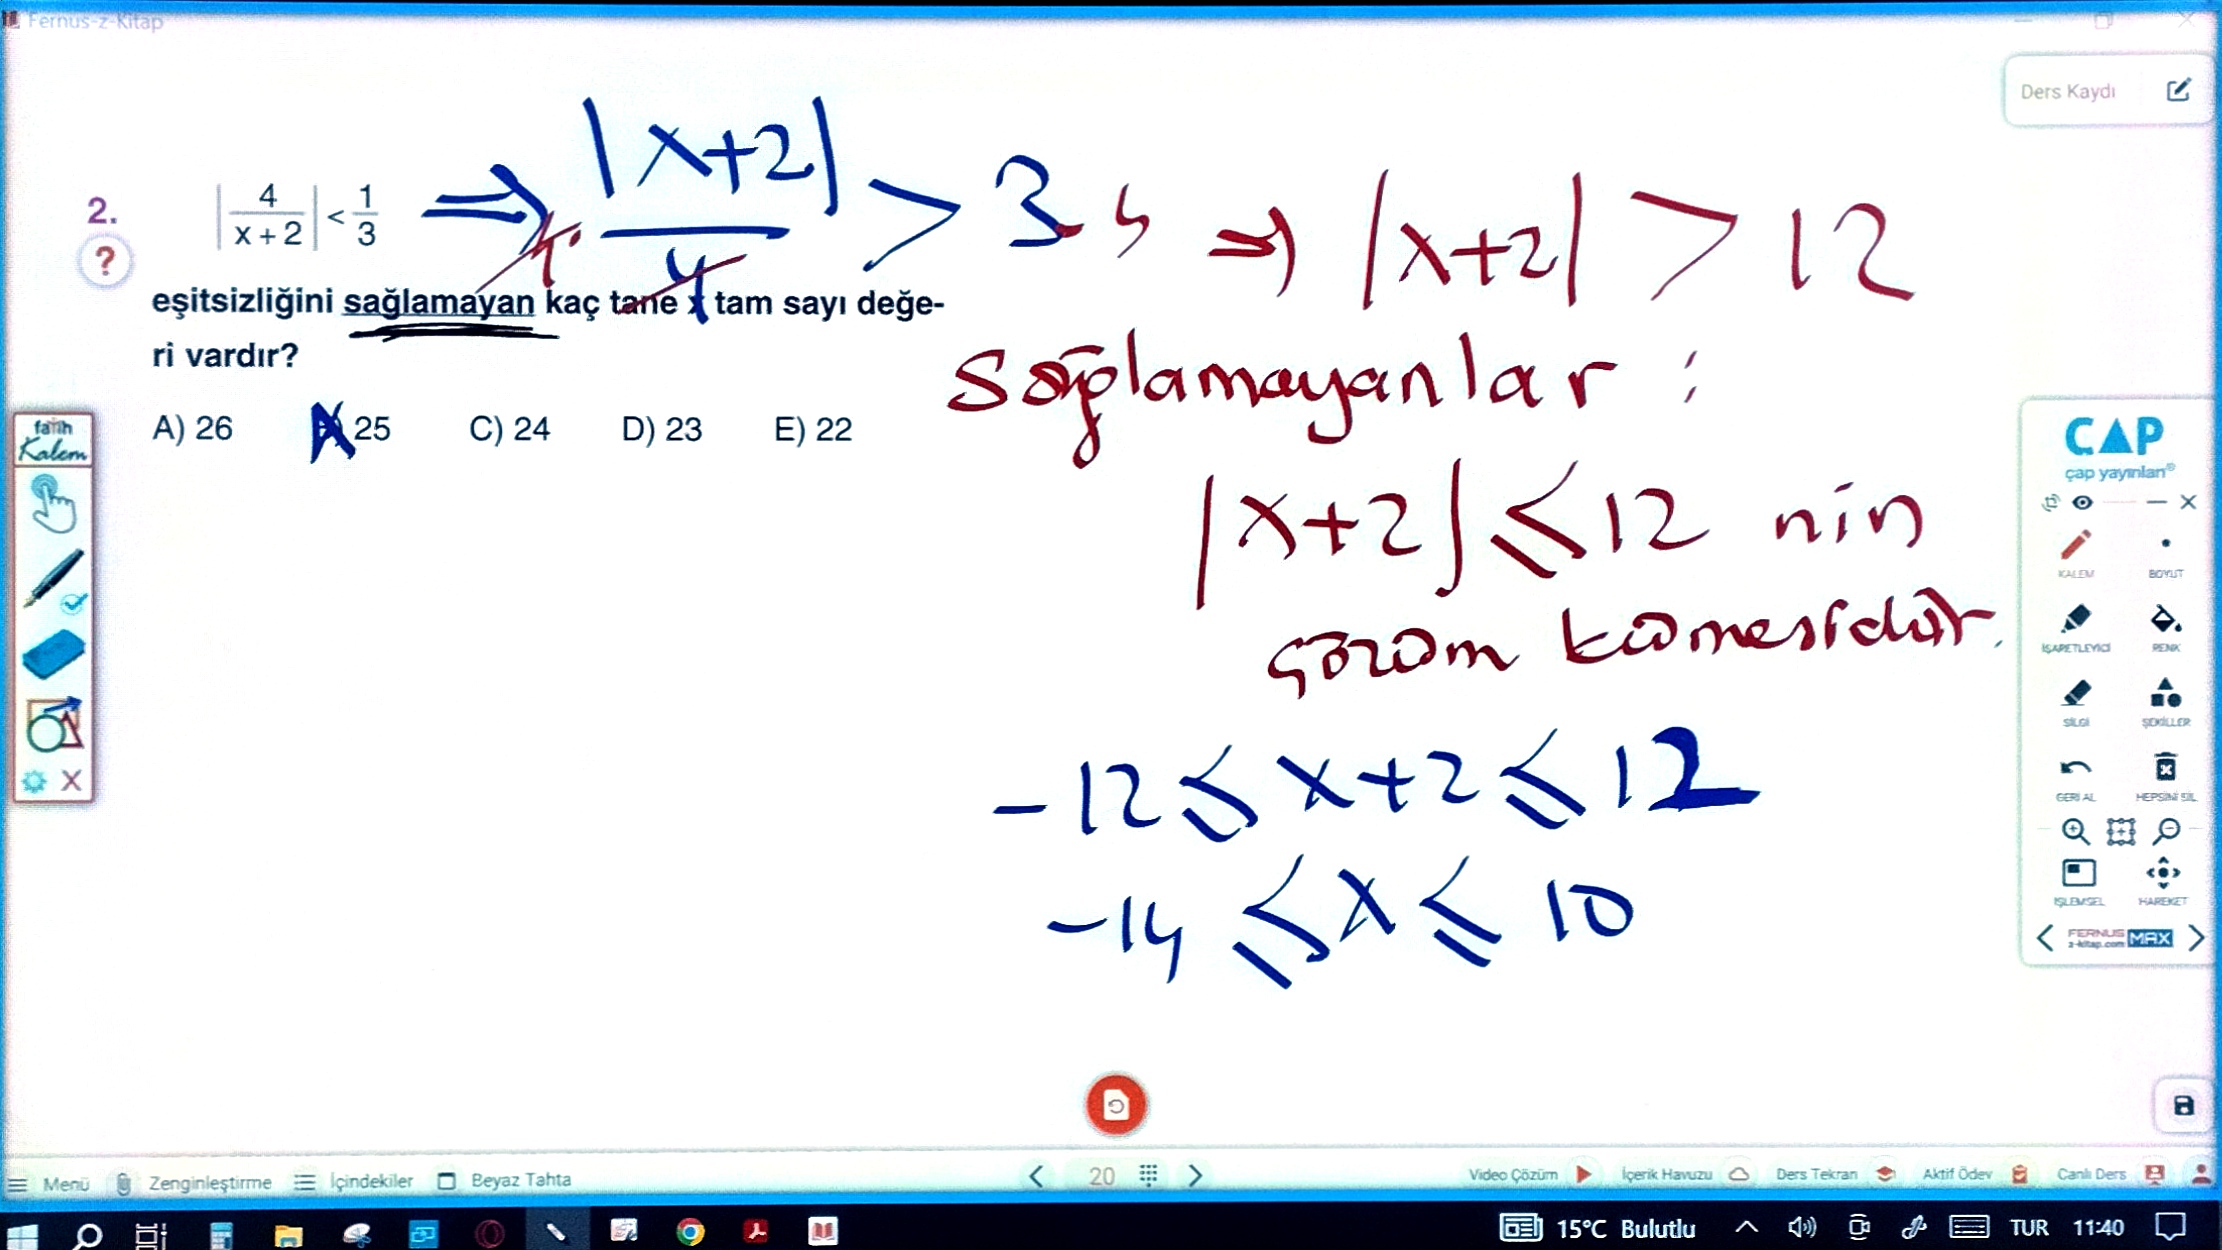 Fernus-z-Kitap
Ders Kaydı
2. |4/(x+2)| < 1/3 ⇒ 4·|x+2|/4 > 3·4 ⇒ |x+2| > 12
?
eşitsizliğini sağlamayan kaç tane x tam sayı değe-
ri vardır?
A) 26 25 C) 24 D) 23 E) 22
Sağlamayanlar :
|x+2| ≤ 12 nin
çözüm kümesidir.
-12 ≤ x+2 ≤ 12
-14 ≤ x ≤ 10
fatih
Kalem
ÇAP
çap yayınları®
KALEM BOYUT
İŞARETLEYİCİ RENK
SİLGİ ŞEKİLLER
GERİ AL HEPSİNİ SİL
İŞLEMSEL HAREKET
FERNUS
z-kitap.com MAX
Menü Zenginleştirme İçindekiler Beyaz Tahta 20 Video Çözüm İçerik Havuzu Ders Tekrarı Aktif Ödev Canlı Ders
15°C Bulutlu TUR 11:40